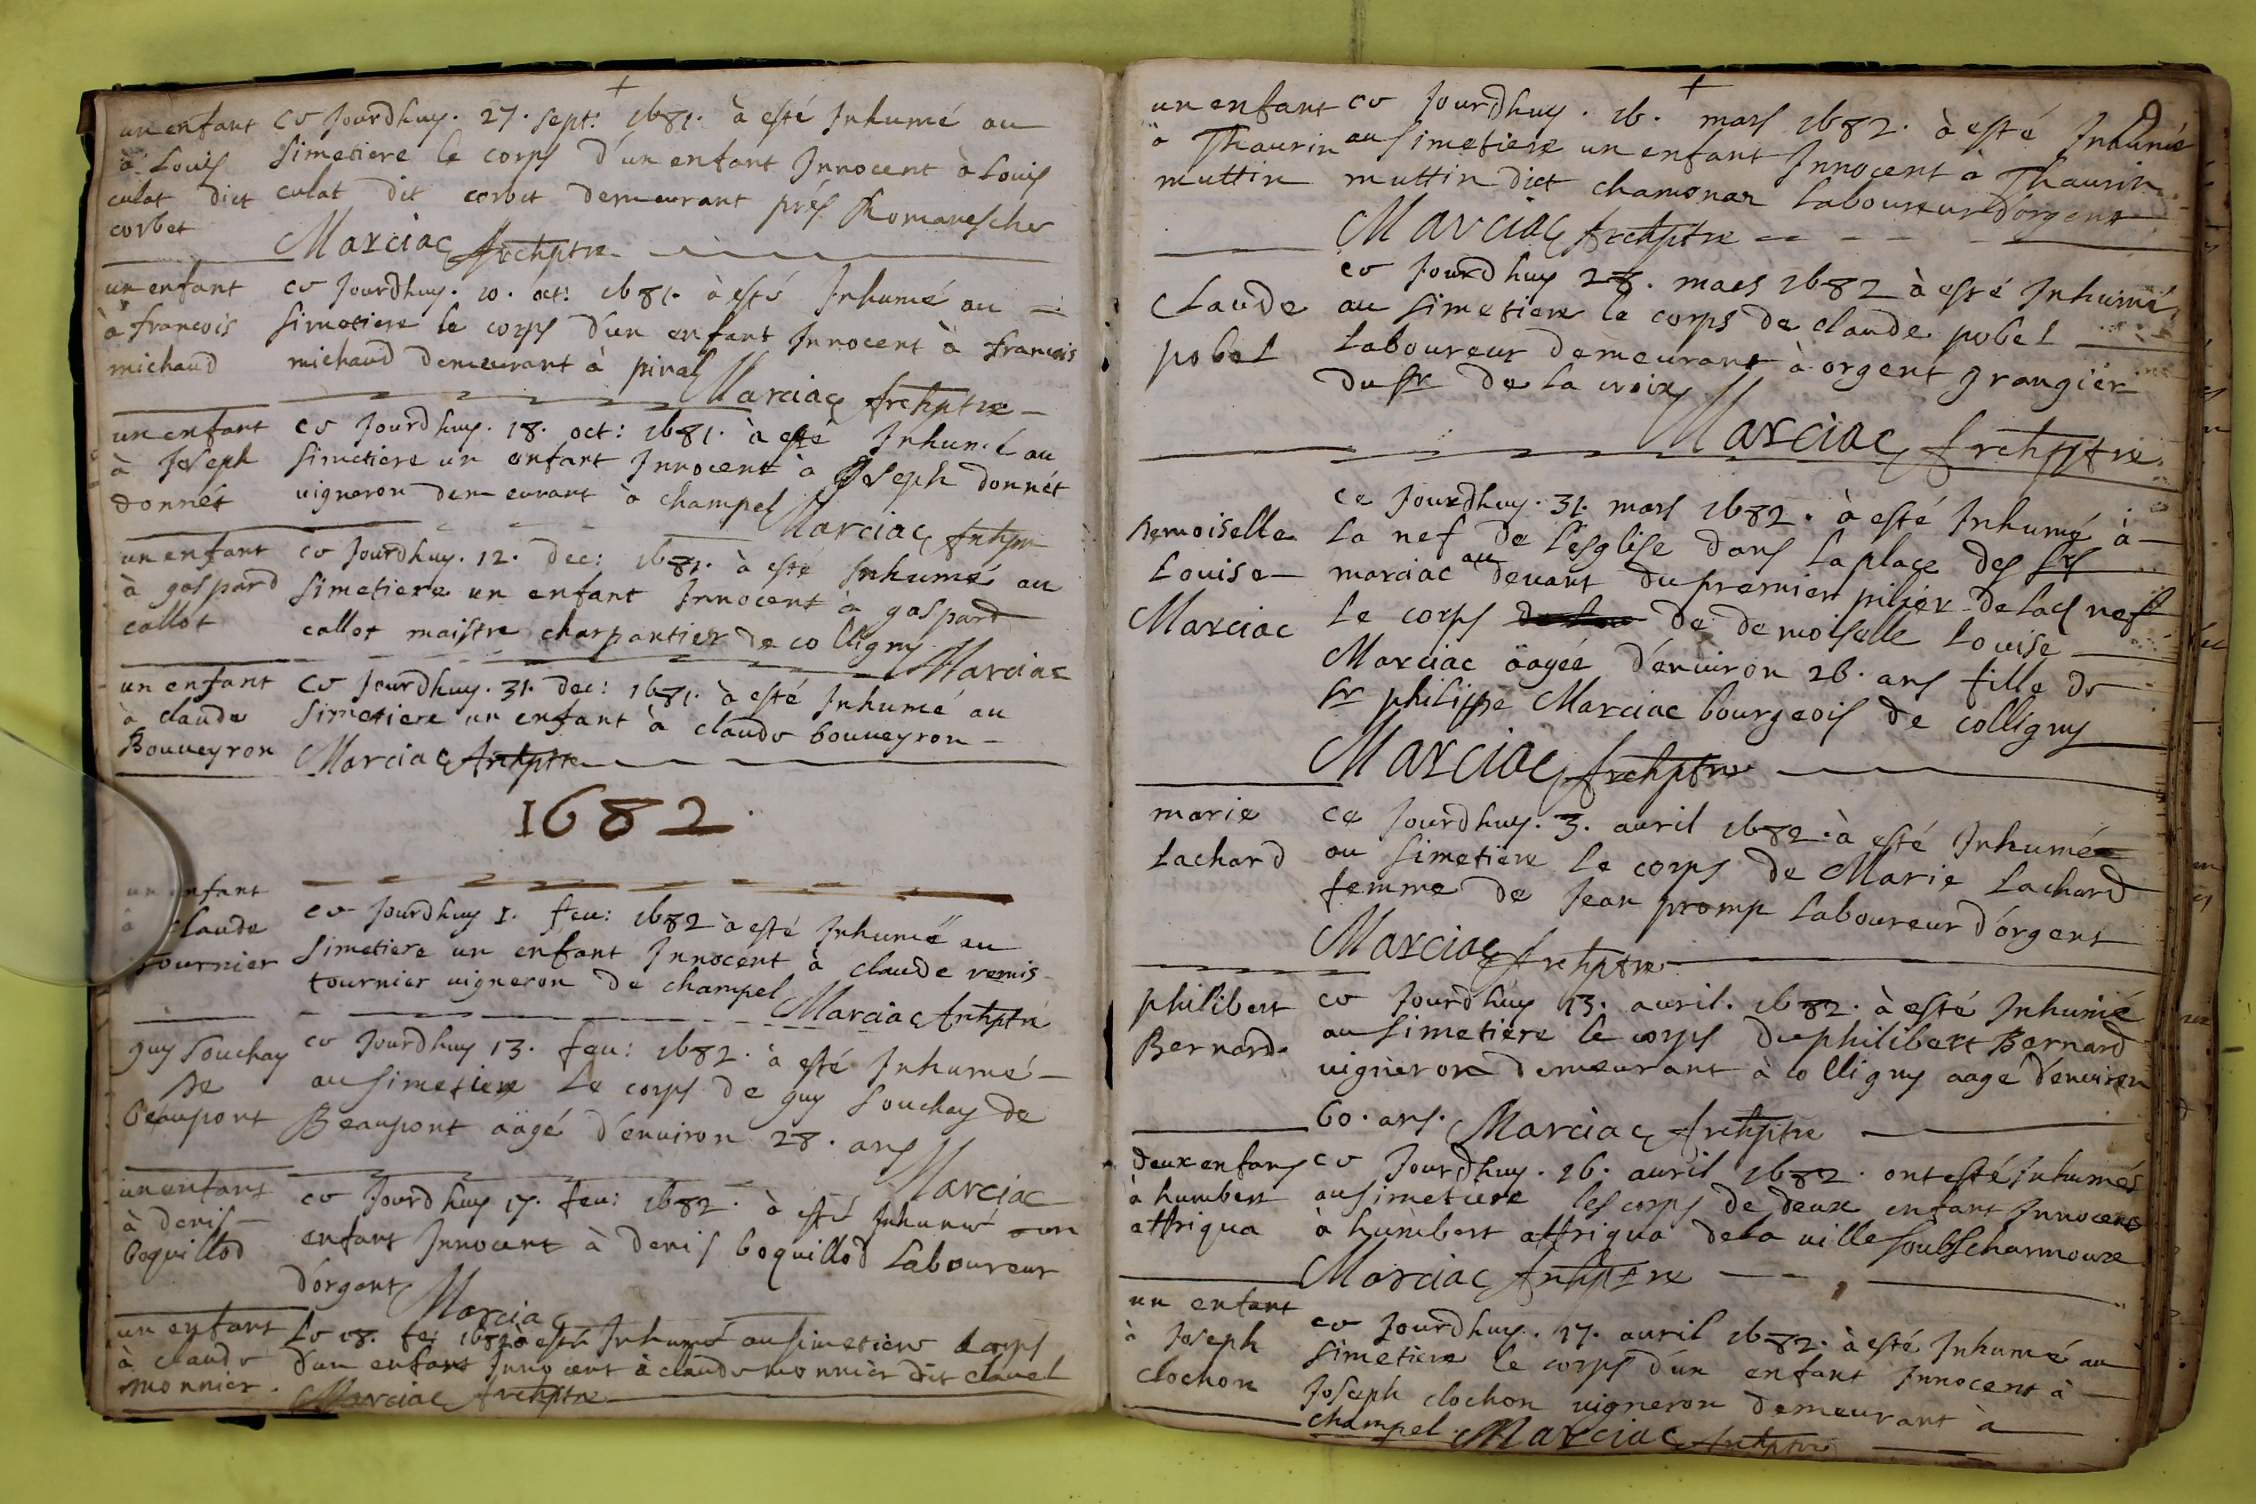 +
un enfant
à Louis
culat dict
corbet
ce Jourdhuy. 27. sept: 1681. à esté Inhumé au
simetiere le corps d'un enfant Innocent à Louis
culat dit corbet demeurant prés Romanesche
Marciac Archptre
un enfant
à francois
michaud
ce Jourdhuy. 10. oct: 1681. à esté Inhumé au
simetiere le corps d'un enfant Innocent à francois
michaud demeurant à pinal
Marciac Archptre
un enfant
à Joseph
donnét
ce Jourdhuy. 18. oct: 1681. à esté Inhumé au
simetiere un enfant Innocent à Joseph donnét
vigneron demeurant à champel
Marciac Archptre
un enfant
à gaspard
callot
ce Jourdhuy. 12. dec: 1681. à esté Inhumé au
simetiere un enfant Innocent à gaspard
callot maistre charpantier de colligny
Marciac
un enfant
à claude
Bouueyron
ce Jourdhuy. 31. dec: 1681. à esté Inhumé au
simetiere un enfant à claude bouueyron
Marciac Archptre
1682.
un enfant
à Claude
tournier
ce Jourdhuy 1. feu: 1682 à esté Inhumé au
simetiere un enfant Innocent à claude remis
tournier vigneron de champel
Marciac Archptre
guy souchay
de
beaupont
ce Jourdhuy 13. feu: 1682. à esté Inhumé
au simetiere le corps de guy souchay de
Beaupont äagé d'enuiron 28. ans
Marciac
un enfant
à denis
boquillod
ce Jourdhuy 17. feu: 1682. à esté Inhumé un
enfant Innocent à denis boquillod Laboureur
d'orgent
Marciac
un enfant
à claude
monnier.
Le 18. fe: 1682 à esté Inhumé au simetiere le corps
d'un enfant Innocent à claude monnier dit clauel
Marciac Archptre
+
9
un enfant
à Thaurin
muttin
ce Jourdhuy. 16. mars 1682. à esté Inhumé
au simetiere un enfant Innocent à Thaurin
muttin dict chamonar Laboureur d'orgent
Marciac Archptre
Claude
pobel
ce Jourdhuy 28. mars 1682 à esté Inhumé
au simetiere le corps de claude pobel
Laboureur demeurant à orgent grangier
du sr de la croix
Marciac Archptre
Demoiselle
Louise
Marciac
ce Jourdhuy. 31. mars 1682. à esté Inhumé à
La nef de l'esglise dans la place des srs
marciac au deuant du premier pilier de lad nef
le corps de demoiselle Louise
Marciac äagée d'enuiron 26. ans fille de
sr philippe Marciac bourgeois de colligny
Marciac Archptre
marie
Lachard
ce Jourdhuy. 3. auril 1682. à esté Inhumé
au simetiere le corps de Marie Lachard
femme de Jean promp Laboureur d'orgent
Marciac Archptre
philibert
Bernard
ce Jourdhuy 13. auril. 1682. à esté Inhumé
au simetiere le corps du philibert Bernard
vigneron demeurant à colligny aagé d'enuiron
60. ans. Marciac Archptre
deux enfans
à humbert
attriqua
ce Jourdhuy. 16. auril 1682. ont esté Inhumés
au simetiere les corps de deux enfant Innocens
à humbert attriqua de la ville soubscharmoux
Marciac Archptre
un enfant
à Joseph
clochon
ce Jourdhuy. 17. auril 1682. à esté Inhumé au
simetiere le corps d'un enfant Innocent à
Joseph clochon vigneron demeurant à
champel. Marciac Archptre